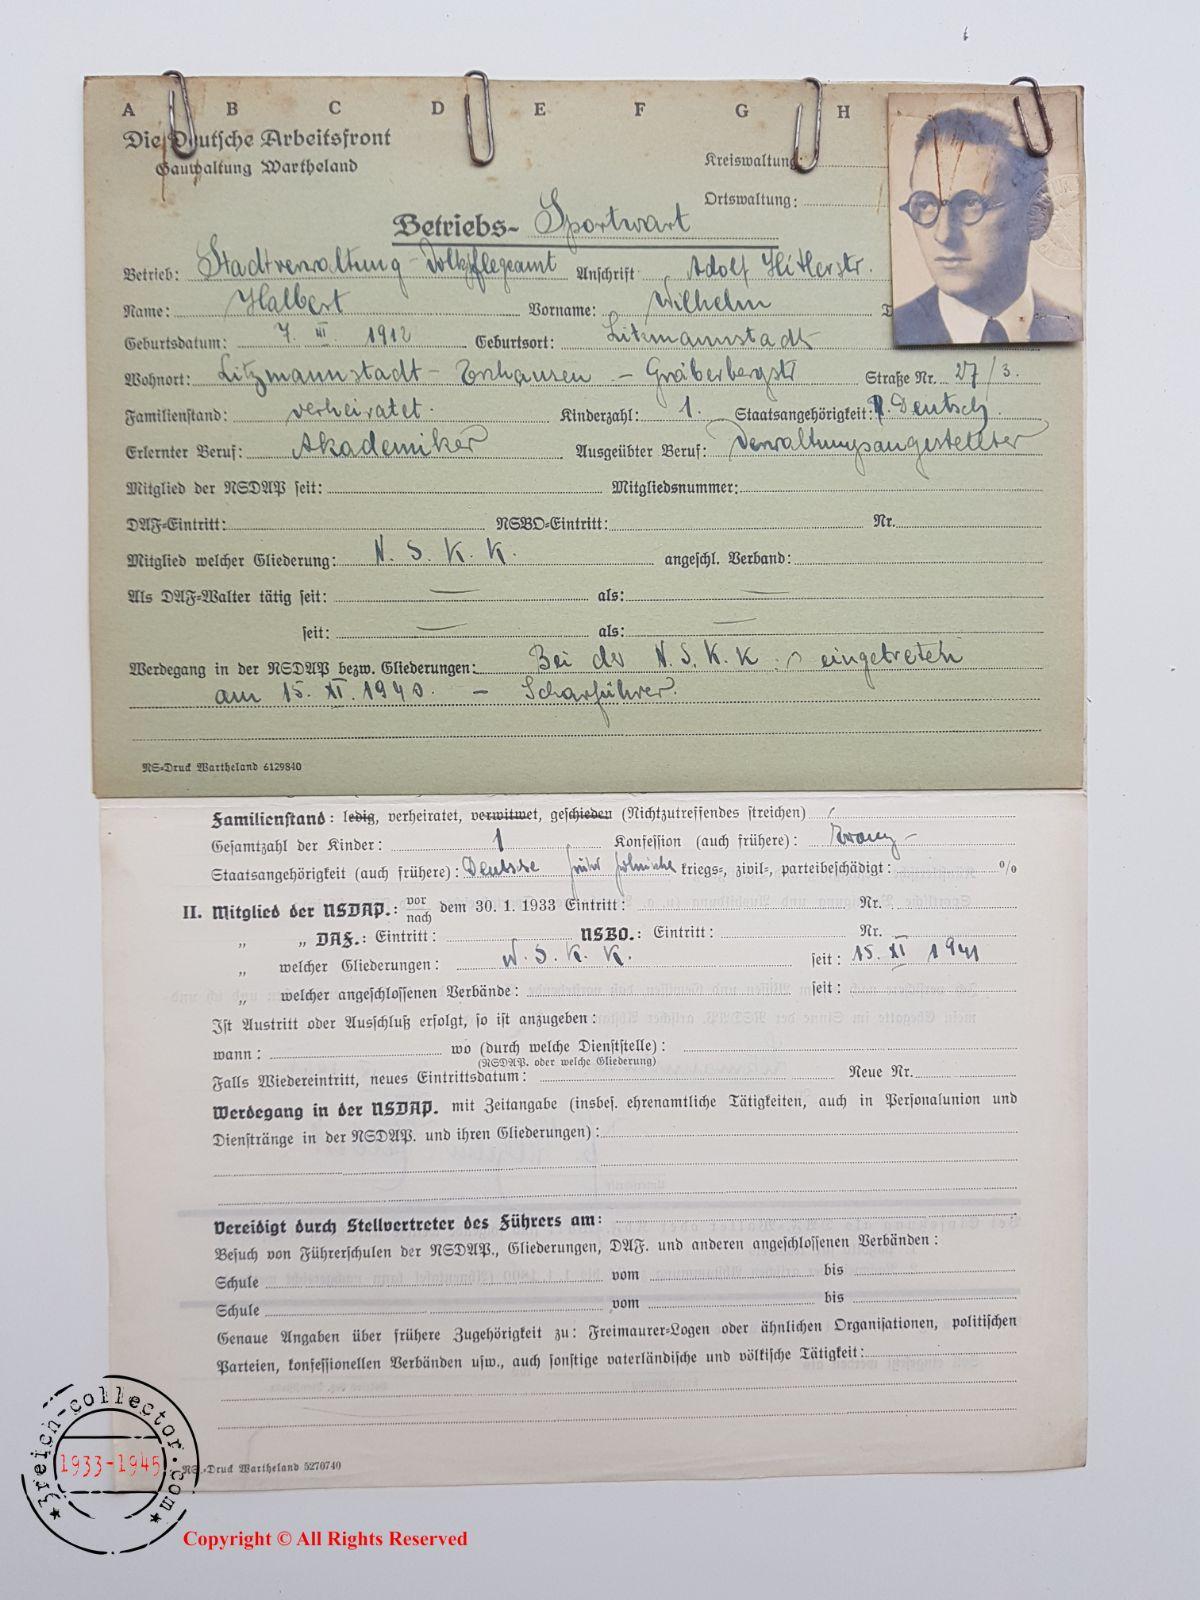 A B C D E F G H
Die Deutsche Arbeitsfront
Gauwaltung Wartheland
Kreiswaltung
Ortswaltung:
Betriebs- Sportwart
Betrieb: Stadtverwaltung - Volkspflegeamt Anschrift Adolf Hitlerstr.
Name: Halbert Vorname: Wilhelm
Geburtsdatum: 7. III. 1912 Geburtsort: Litzmannstadt
Wohnort: Litzmannstadt - Erzhausen - Gräberbergstr Straße Nr. 27/3.
Familienstand: verheiratet. Kinderzahl: 1. Staatsangehörigkeit: Deutsch.
Erlernter Beruf: Akademiker Ausgeübter Beruf: Verwaltungsangestellter
Mitglied der NSDAP seit: Mitgliedsnummer:
DAF-Eintritt: NSBO-Eintritt: Nr.
Mitglied welcher Gliederung: N. S. K. K. angeschl. Verband:
Als DAF-Walter tätig seit: — als: —
seit: — als: —
Werdegang in der NSDAP bezw. Gliederungen: Bei der N. S. K. K. eingetreten
am 15. XI. 1940. - Scharführer.
NS-Druck Wartheland 6129840
Familienstand: ledig, verheiratet, verwitwet, geschieden (Nichtzutreffendes streichen)
Gesamtzahl der Kinder: 1 Konfession (auch frühere): Evang -
Staatsangehörigkeit (auch frühere): Deutsche früher polnische kriegs-, zivil-, parteibeschädigt: %
II. Mitglied der NSDAP.: vor nach dem 30. 1. 1933 Eintritt: Nr.
„ „ DAF.: Eintritt: NSBO.: Eintritt: Nr.
„ welcher Gliederungen: N. S. K. K. seit: 15. XI 1941
„ welcher angeschlossenen Verbände: seit:
Ist Austritt oder Ausschluß erfolgt, so ist anzugeben:
wann: wo (durch welche Dienststelle):
(NSDAP. oder welche Gliederung)
Falls Wiedereintritt, neues Eintrittsdatum: Neue Nr.
Werdegang in der NSDAP. mit Zeitangabe (insbes. ehrenamtliche Tätigkeiten, auch in Personalunion und
Dienstränge in der NSDAP. und ihren Gliederungen):
Vereidigt durch Stellvertreter des Führers am:
Besuch von Führerschulen der NSDAP., Gliederungen, DAF. und anderen angeschlossenen Verbänden:
Schule vom bis
Schule vom bis
Genaue Angaben über frühere Zugehörigkeit zu: Freimaurer-Logen oder ähnlichen Organisationen, politischen
Parteien, konfessionellen Verbänden usw., auch sonstige vaterländische und völkische Tätigkeit:
NS.-Druck Wartheland 5270740
3reich-collector.com
1933-1945
Copyright © All Rights Reserved